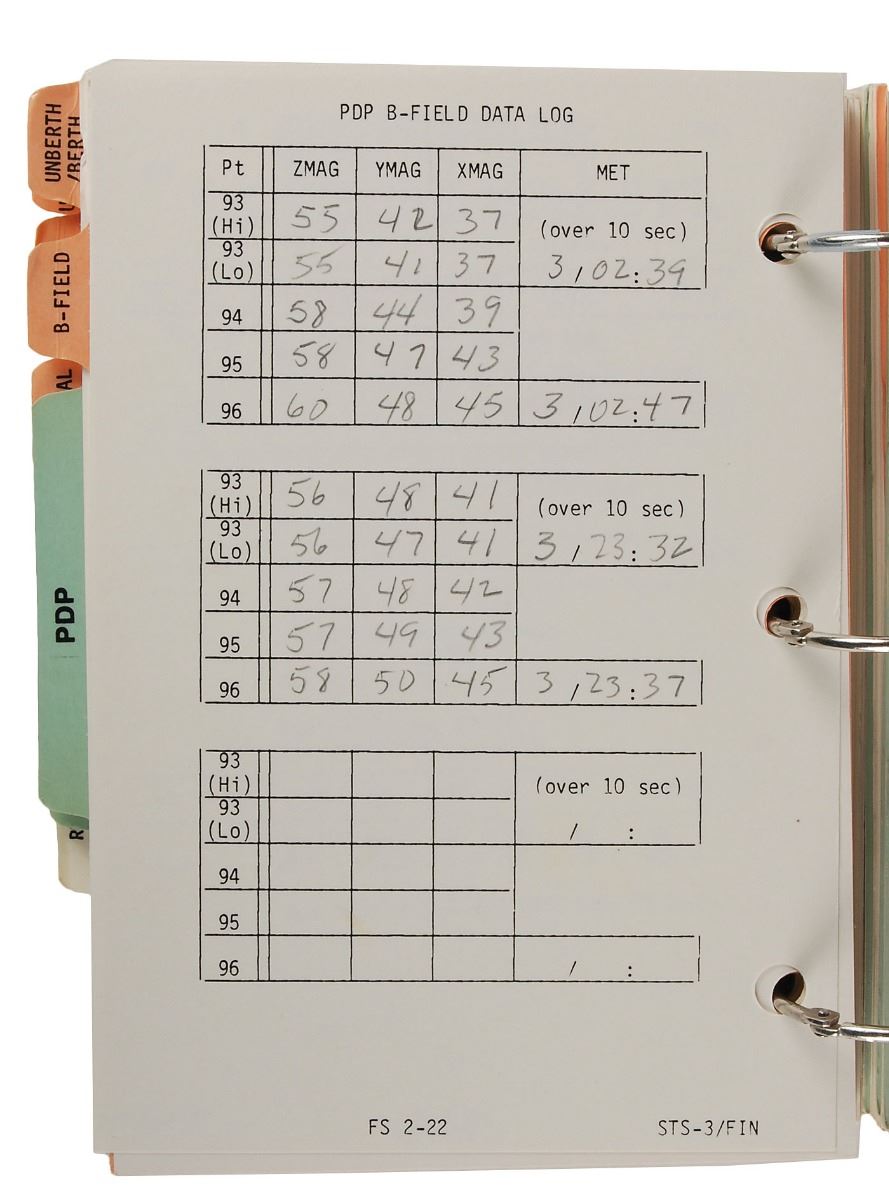 UNBERTH
/BERTH
U
B-FIELD
AL
PDP
R
PDP B-FIELD DATA LOG
Pt ZMAG YMAG XMAG MET
93 (Hi) 55 42 37 (over 10 sec)
93 (Lo) 55 41 37 3 / 02:39
94 58 44 39
95 58 47 43
96 60 48 45 3 / 02:47
93 (Hi) 56 48 41 (over 10 sec)
93 (Lo) 56 47 41 3 / 23:32
94 57 48 42
95 57 49 43
96 58 50 45 3 / 23:37
93 (Hi) (over 10 sec)
93 (Lo) / :
94
95
96 / :
FS 2-22 STS-3/FIN